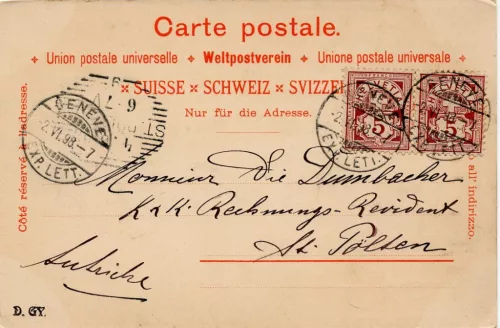 Carte postale.
+ Union postale universelle + Weltpostverein + Unione postale universale +
× SUISSE × SCHWEIZ × SVIZZERA
Nur für die Adresse.
Côté réservé à l'adresse.
all' indirizzo.
GENÈVE
2.VI.98.-7
EXP. LETT.
GENEVE
EXP. LETT.
GENEVE
EXP. LETT.
5
5
Monsieur Die Dumbacher
K & K Rechnungs-Revident
St. Pölten
Autriche
D. GY.